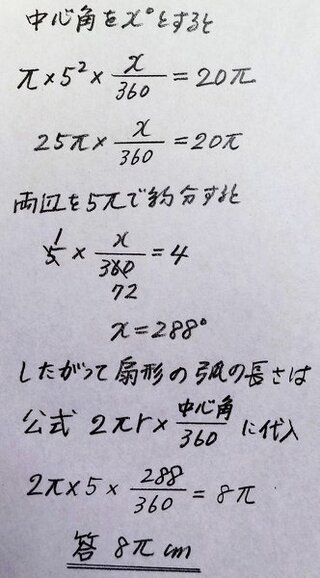 中心角をx°とすると
π×5²×x/360=20π
25π×x/360=20π
両辺を5πで約分すると
5 1×x/360 72=4
x=288°
したがって扇形の弧の長さは
公式 2πr×中心角/360に代入
2π×5×288/360=8π
答 8πcm